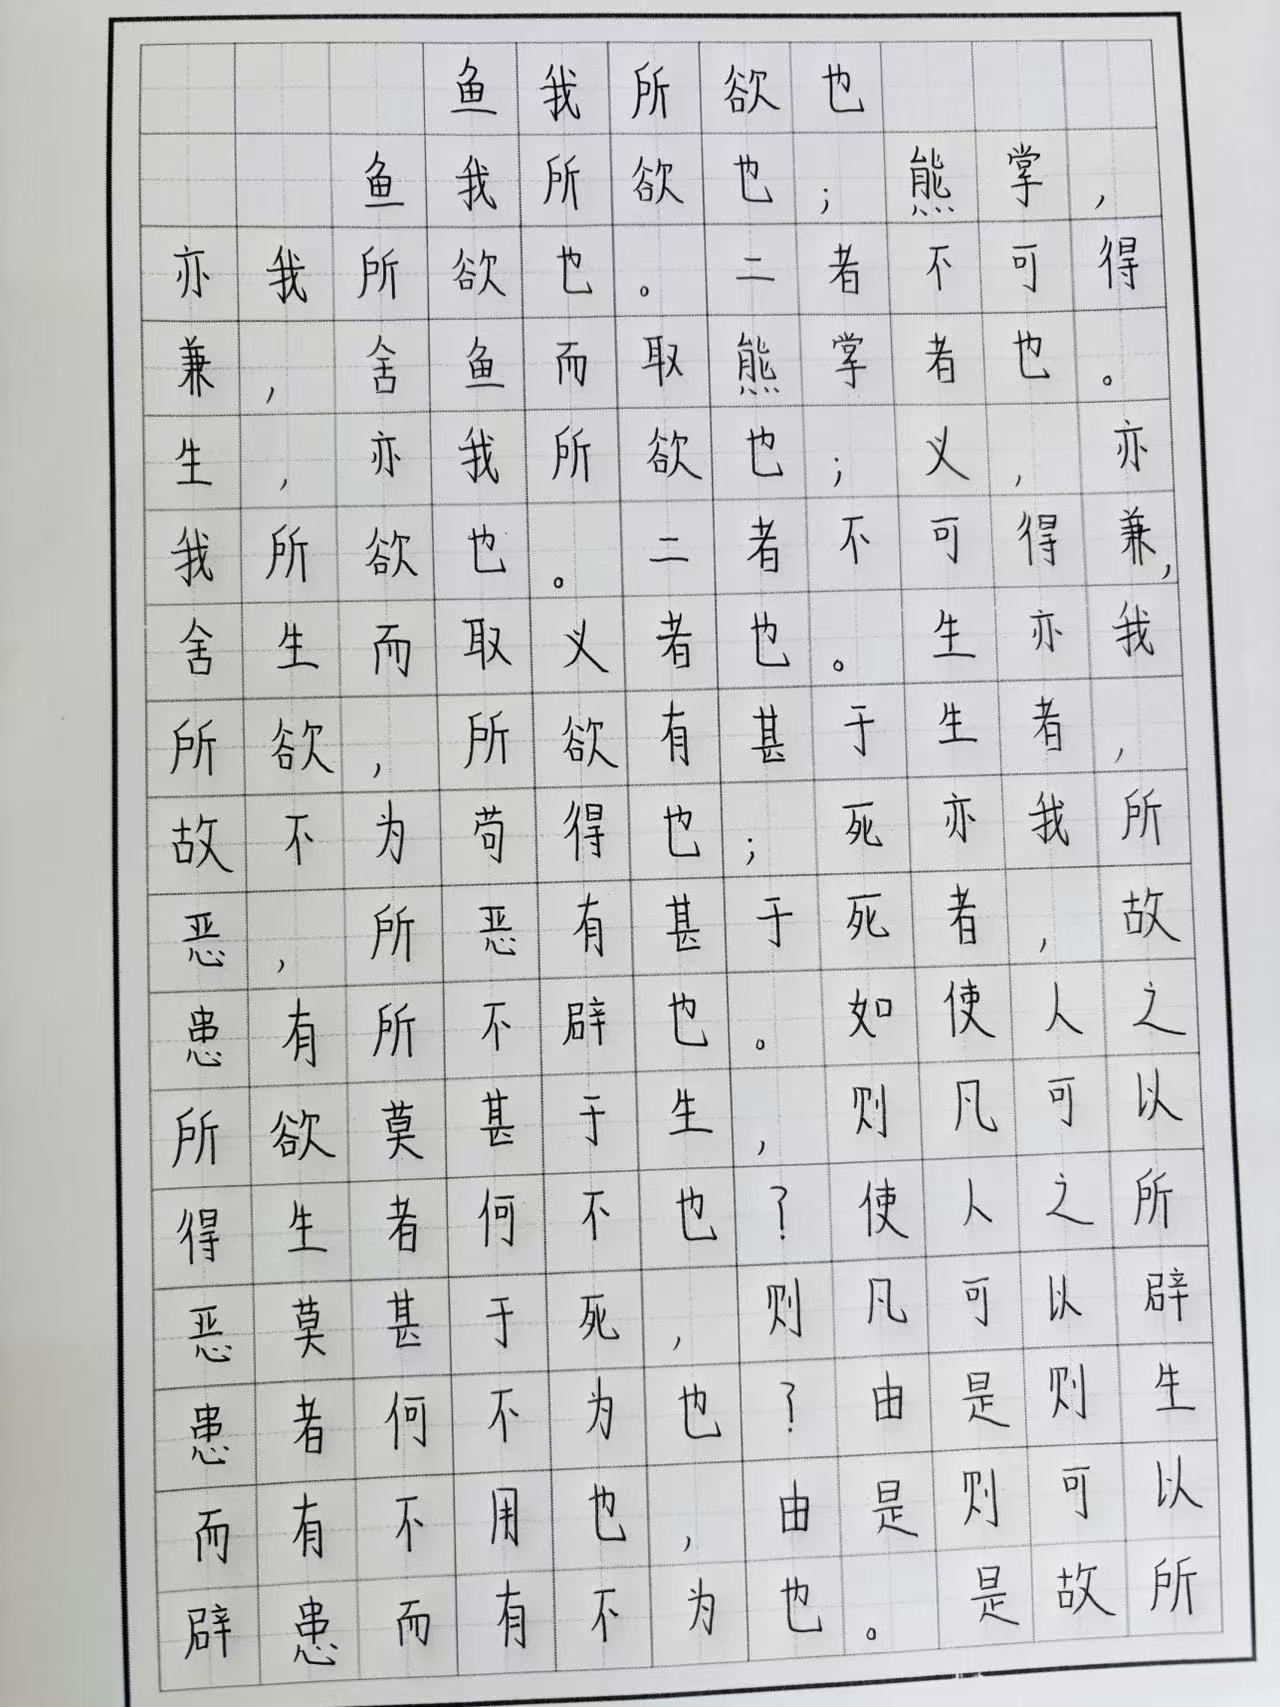 鱼我所欲也
鱼我所欲也；熊掌，
亦我所欲也。二者不可得
兼，舍鱼而取熊掌者也。
生，亦我所欲也；义，亦
我所欲也。二者不可得兼，
舍生而取义者也。生亦我
所欲，所欲有甚于生者，
故不为苟得也；死亦我所
恶，所恶有甚于死者，故
患有所不辟也。如使人之
所欲莫甚于生，则凡可以
得生者何不也？使人之所
恶莫甚于死，则凡可以辟
患者何不为也？由是则生
而有不用也，由是则可以
辟患而有不为也。是故所